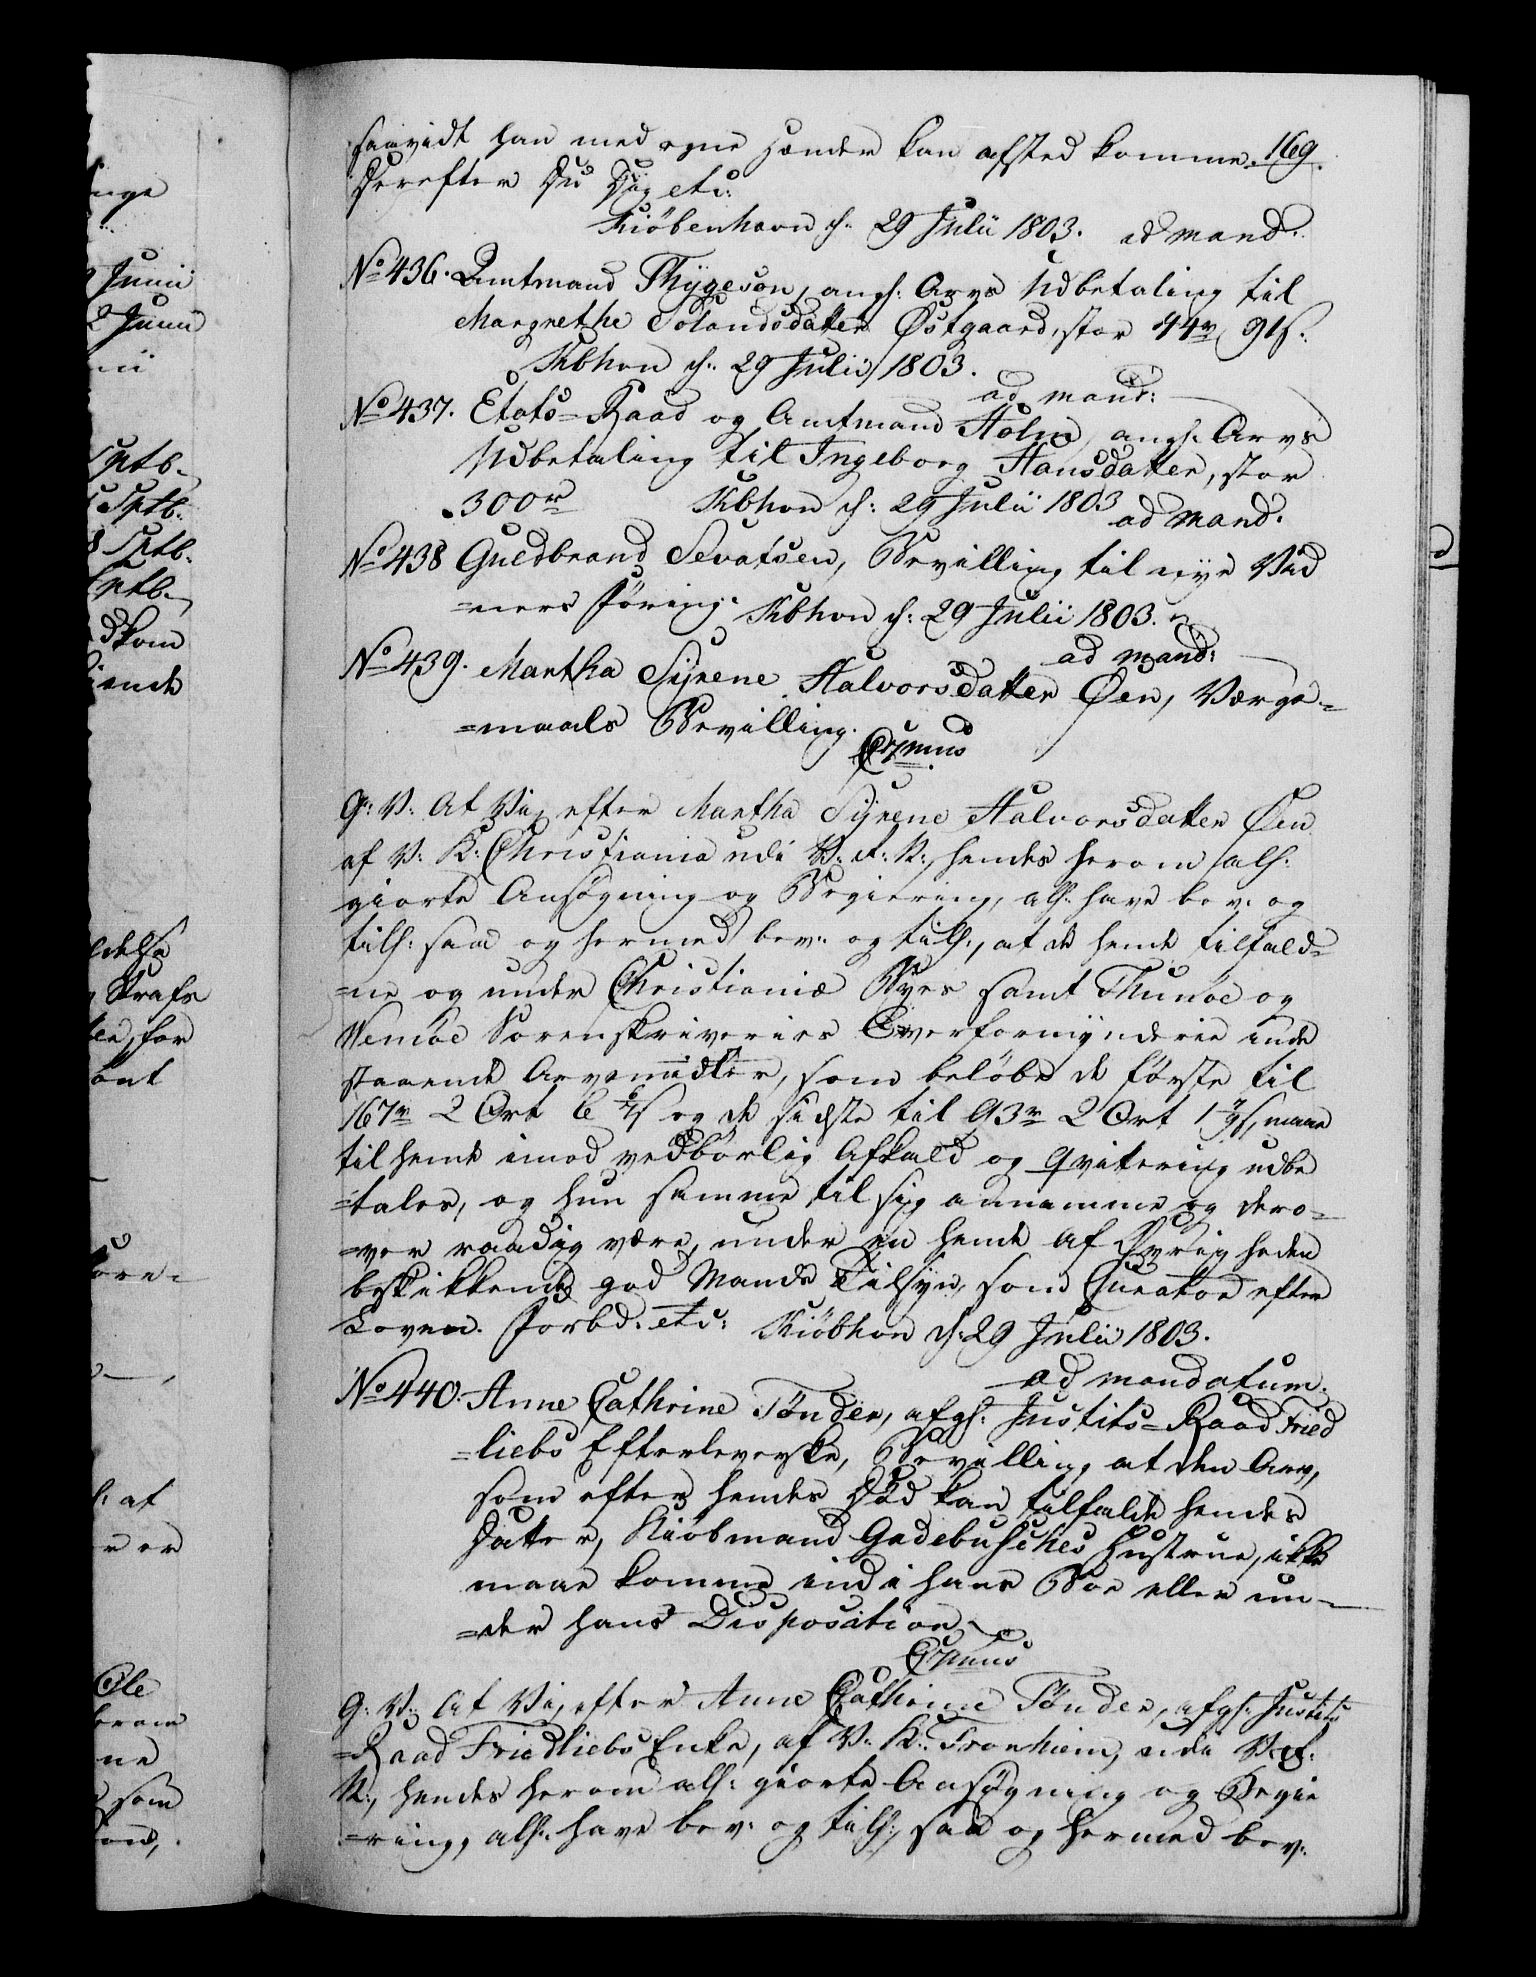 saavidt han med egne Hænder kan afsted komme. 169.
Derefter Du Dig etc:
Kiöbenhavn d: 29 Julii 1803. ad mand.
No 436. Amtmand Thygeson, angl: Arvs Udbetaling til
Margrethe Solandsdatter Østgaard, stor 44 rd 91 s.
Kbhvn d: 29 Julii 1803.
ad mand:
No 437. Etats=Raad og Amtmand Holm, angl: Arvs
Udbetaling til Ingeborg Hansdatter, stor
300 rd Kbhvn d: 29 Julii 1803
ad mand.
No 438 Guldbrand Sevatsen, Bevilling til nye Vid
=ners Föring. Kbhvn d: 29 Julii 1803.
ad mand:
No 439. Martha Syrene Halvorsdatter Øen, Værge=
=maals Bevilling.
C7mus
G: V: At Vi, efter Martha Syrene Halvorsdatter Øen
af V: K: Christiania udi V: R: N:, hendes herom all:
giorte Ansögning og Begiering, all: have bev: og
till: saa og hermed bev: og till:, at de hende tilfald=
=ne og under Christianiæ Byes samt Thunöe og
Sorenskriveries Overformynderie inde
staaende Arvemidler, som belöbe de förste til
167 rd 2 Ort 6 6/7 s og de sidste til 93 rd 2 Ort 1 s, maae
til hende imod vedbörlig Afkald og Qvitering udbe
=tales, og hun samme til sig annamme og dero=
=ver raadig være, under en hende af Øvrigheden
beskikkende god Mands Tilsyn, som Curator efter
Loven. Forbd: etc: Kiöbhvn d: 29 Julii 1803.
ad mandatum.
No 440. Anne Cathrine Tönder, afg: Justits=Raad Fried
=liebs Efterleverske, Bevilling, at den Arv,
som efter hendes Död kan tilfalde hendes
Datter, Kiöbmand Gadebusches Hustrue, ikke
maae komme ind i hans Boe eller un=
=der hans Disposition
C7mus
G: V: At Vi, efter Anne Cathrine Tönder, afg: Justits
=Raad Friedliebs Enke, af V: K: Tronhiem, udi V: R:
N:, hendes herom all: giorte Ansögning og Begie
=ring, all: have bev: og till:, saa og hermed bev: